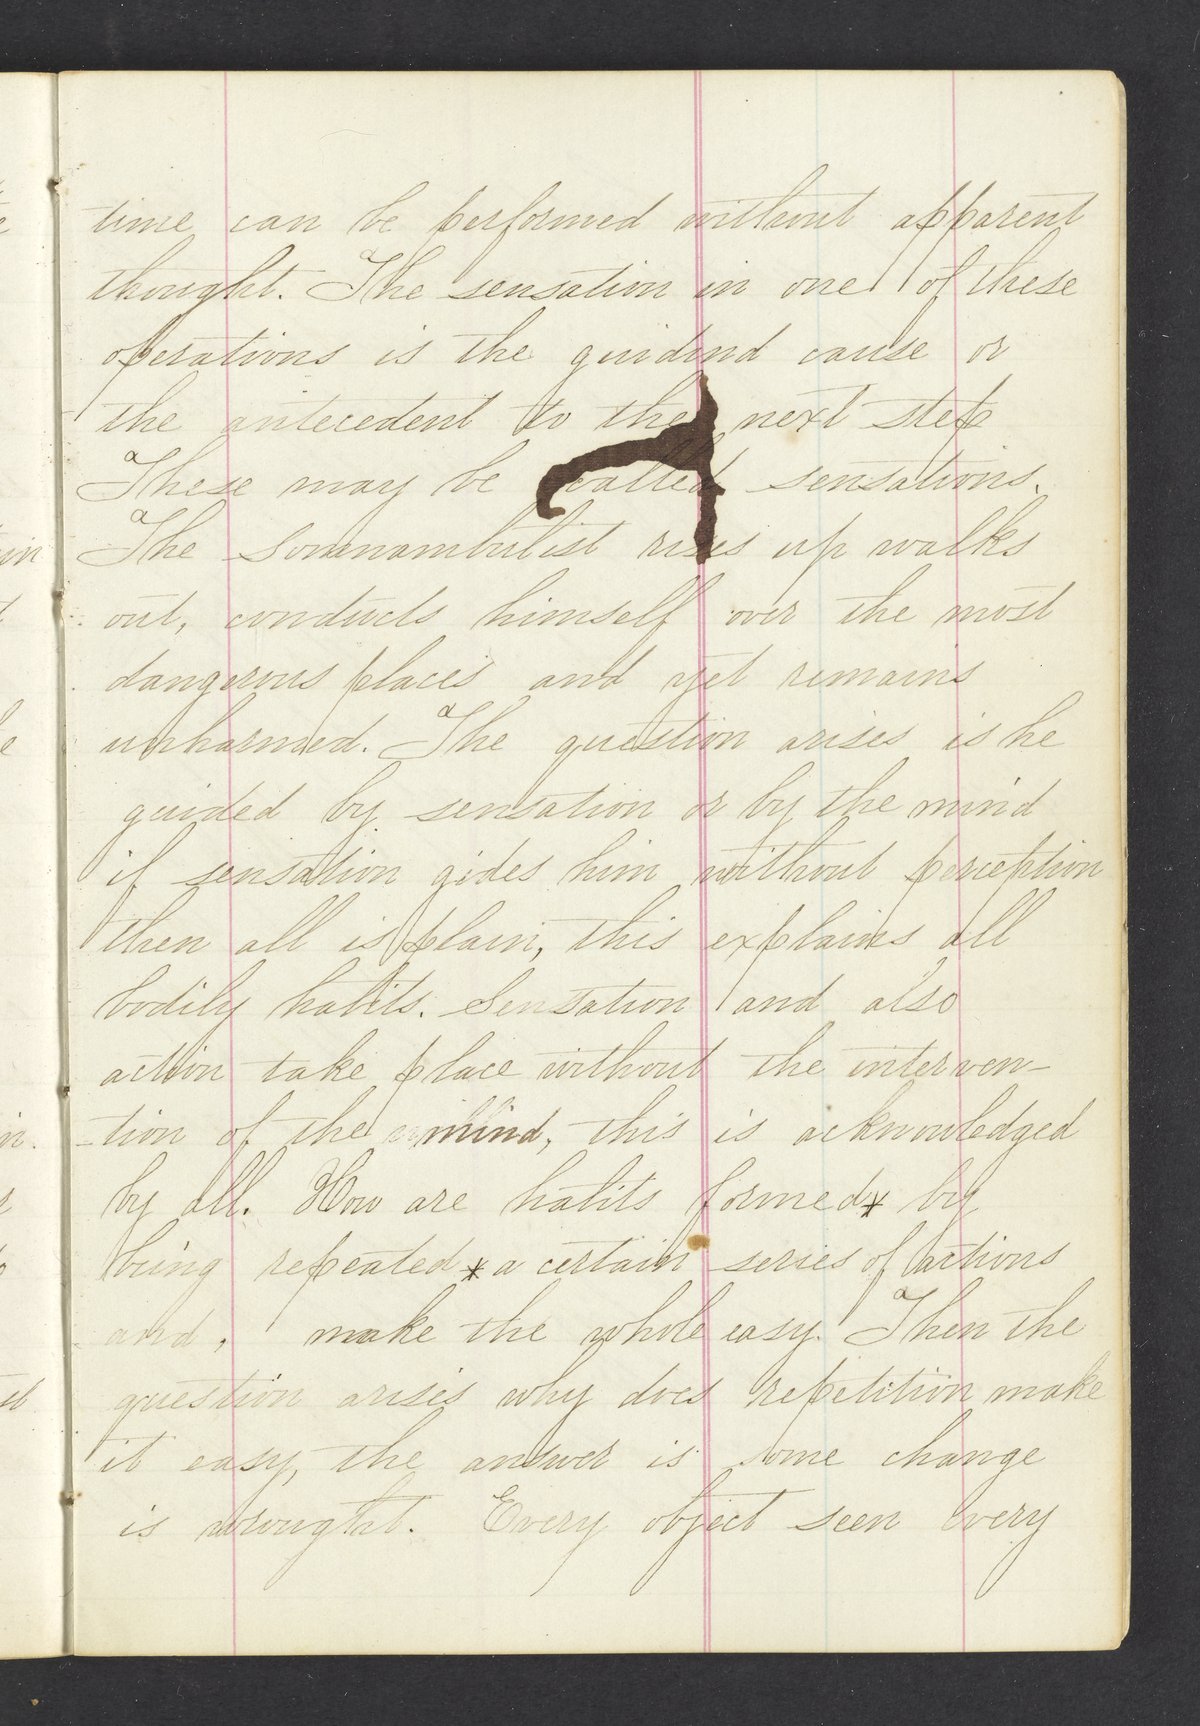 time can be performed without apparent
thought. The sensation in one of these
operations is the guidind cause or
the antecedent to the next step
These may be called sensations.
The Somnambulist rises up walks
out, conducts himself over the most
dangerous places and yet remains
unharmed. The question arises is he
guided by sensation or by the mind
if sensation gides him without perception
then all is plain, this explains all
bodily habits. Sensation and also
action take place without the interven-
-tion of the mind, this is acknowledged
by all. How are habits formed* by
being repeated * a certain series of actions
and, make the whole easy. Then the
question arises why does repetition make
it easy, the answer is some change
is wrought. Every object seen every